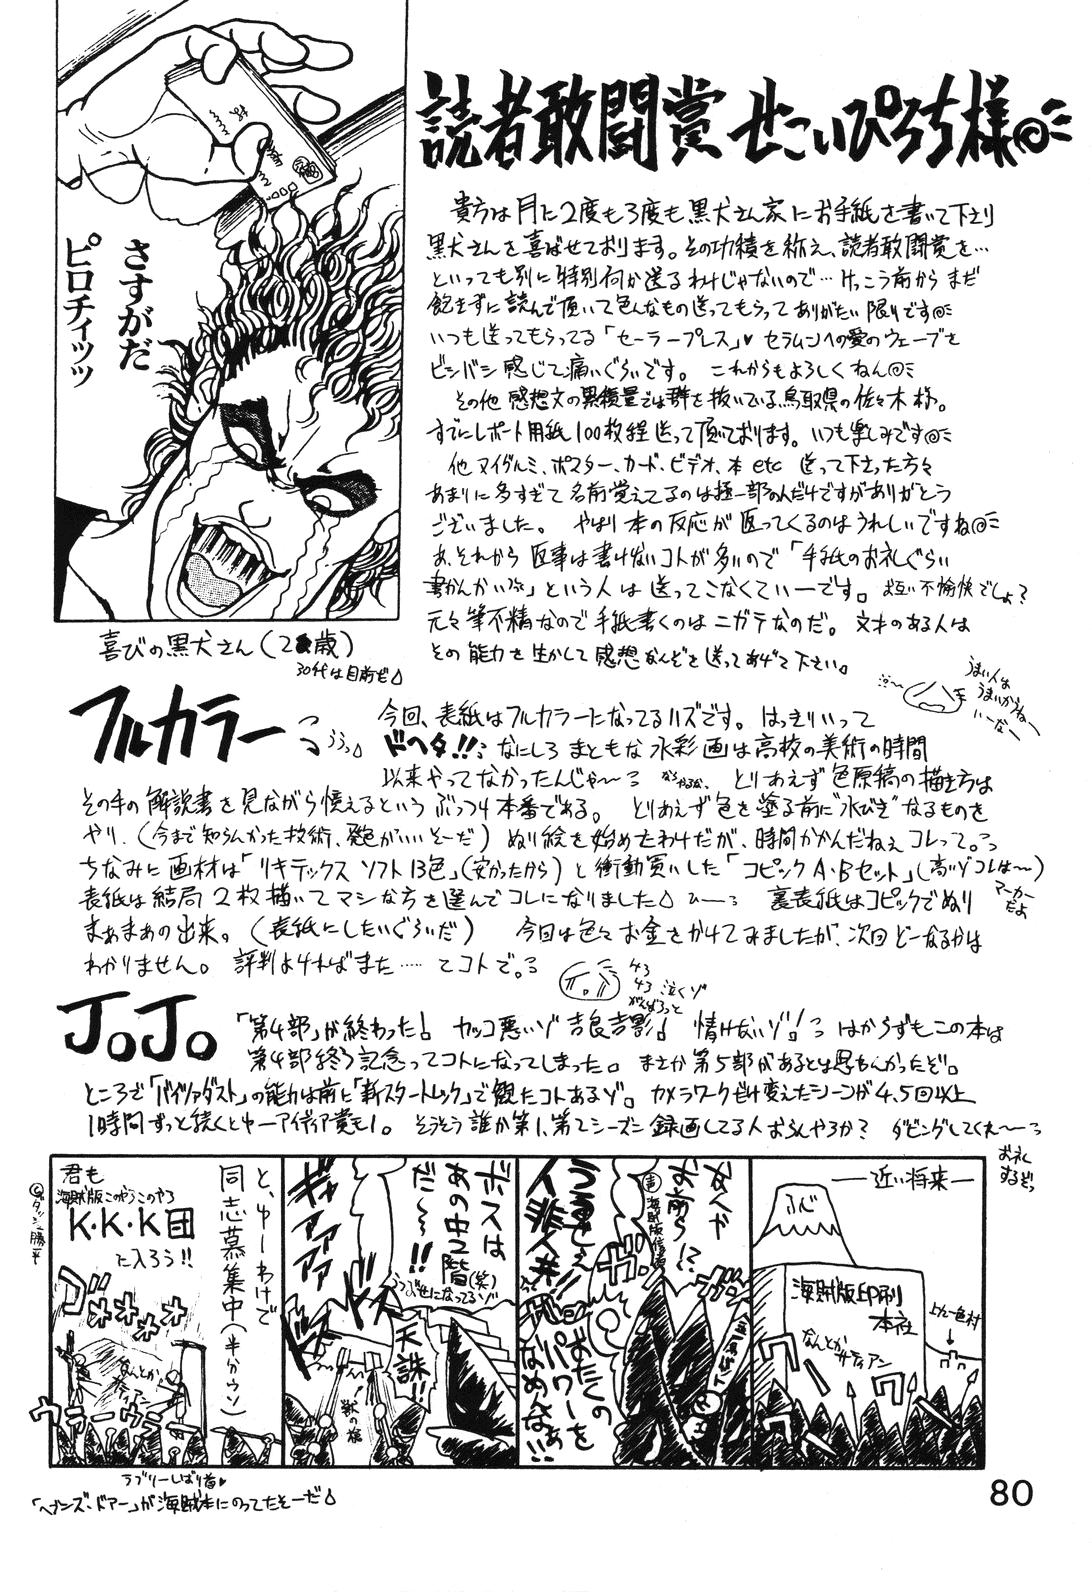 読者敢闘賞 せこいぴろち様
さすがだ
ピロチィッッ
喜びの黒犬さん(2 歳)
30代は目前だ
貴方は月に2度も3度も黒犬さん家にお手紙を書いて下さり
黒犬さんを喜ばせております。その功績を称え、読者敢闘賞を…
といっても別に特別何か送るわけじゃないので…けっこう前からまだ
飽きずに読んで頂いて色んなもの送ってもらってありがたい限りです
いつも送ってもらってる「セーラープレス」♥ セラムンへの愛のウェーブを
ビンバン感じて痛いぐらいです。 これからもよろしくねん
その他 感想文の累積量では群を抜いている鳥取県の佐々木様。
すでにレポート用紙100枚程送って頂いております。いつも楽しみです
他 ヌイグルミ、ポスター、カード、ビデオ、本 etc 送って下さった方々
あまりに多すぎて名前覚えてるのは極一部の人だけですがありがとう
ございました。 やはり本の反応が返ってくるのはうれしいですね
あ、それから返事は書けないコトが多いので「手紙のお礼ぐらい
書かんかい」という人は送ってこなくてい一です。お互い不愉快でしょ?
元々筆不精なので手紙書くのはニガテなのだ。文才のある人は
その能力を生かして感想なんぞを送ってあげて下さい。
うまい人は
うまいからねー
いーなー
フルカラー
ううっ
今回、表紙はフルカラーになってるハズです。はっきりいって
ドヘタ!! なにしろまともな水彩画は高校の美術の時間
以来やってなかったんじゃ〜 とりあえず色原稿の描き方は
その手の解説書を見ながら憶えるというぶっつけ本番である。 とりあえず色を塗る前に"水びき"なるものを
やり、(今まで知らんかった技術、発色がいいそーだ) ぬり絵を始めたわけだが、時間かかんだねぇコレって。
ちなみに画材は「リキテックス ソフト13色」(安かったから)と衝動買いした「コピックA・Bセット」(高いゾコレは〜)
マーカーだよ
表紙は結局2枚描いてマシな方を選んでコレになりました ひーっ 裏表紙はコピックでぬり
まぁまぁの出来。(表紙にしたいぐらいだ) 今回は色々お金をかけてみましたが、次回どーなるかは
わかりません。評判よければまた……てコトで。
泣くゾ
がんばろっと
JoJo
「第4部」が終わった! カッコ悪いゾ吉良吉影! 情けないゾ! はからずもこの本は
第4部終了記念ってコトになってしまった。まさか第5部があるとは思もんかったぞ。
ところで「バイツァダスト」の能力は前に「新スタートレック」で観たコトあるゾ。カメラワークだけ変えたシーンが4,5回以上
1時間ずっと続くとゆーアイディア賞も1。そうそう誰か第1、第2シーズン録画してる人おらんやろか? ダビングしてくれ〜〜っ
お礼
するぞっ
―近い将来―
ふじ
海賊版印刷
本社
上九一色村
なんとか
サティアン
なんや
お前ら!?
海賊版信者
うるせぇ
人非人共!!
おたくの
パワーを
なめんなぁ!!
ボスは
あの中2階(笑)
だ〜〜!!
うつぶせになってるゾ
天誅!!
獣の槍
ギャァァァァ
と、ゆーわけで
同志募集中(半分ウソ)
君も
海賊版このやろうこのやろ
K・K・K団
に入ろう!!
ゴォォォォ
なんとか
サティアン
ウラーウラー
ラブリーしばり首♥
「ヘブンズ・ドアー」が海賊本にのってたそーだ
80